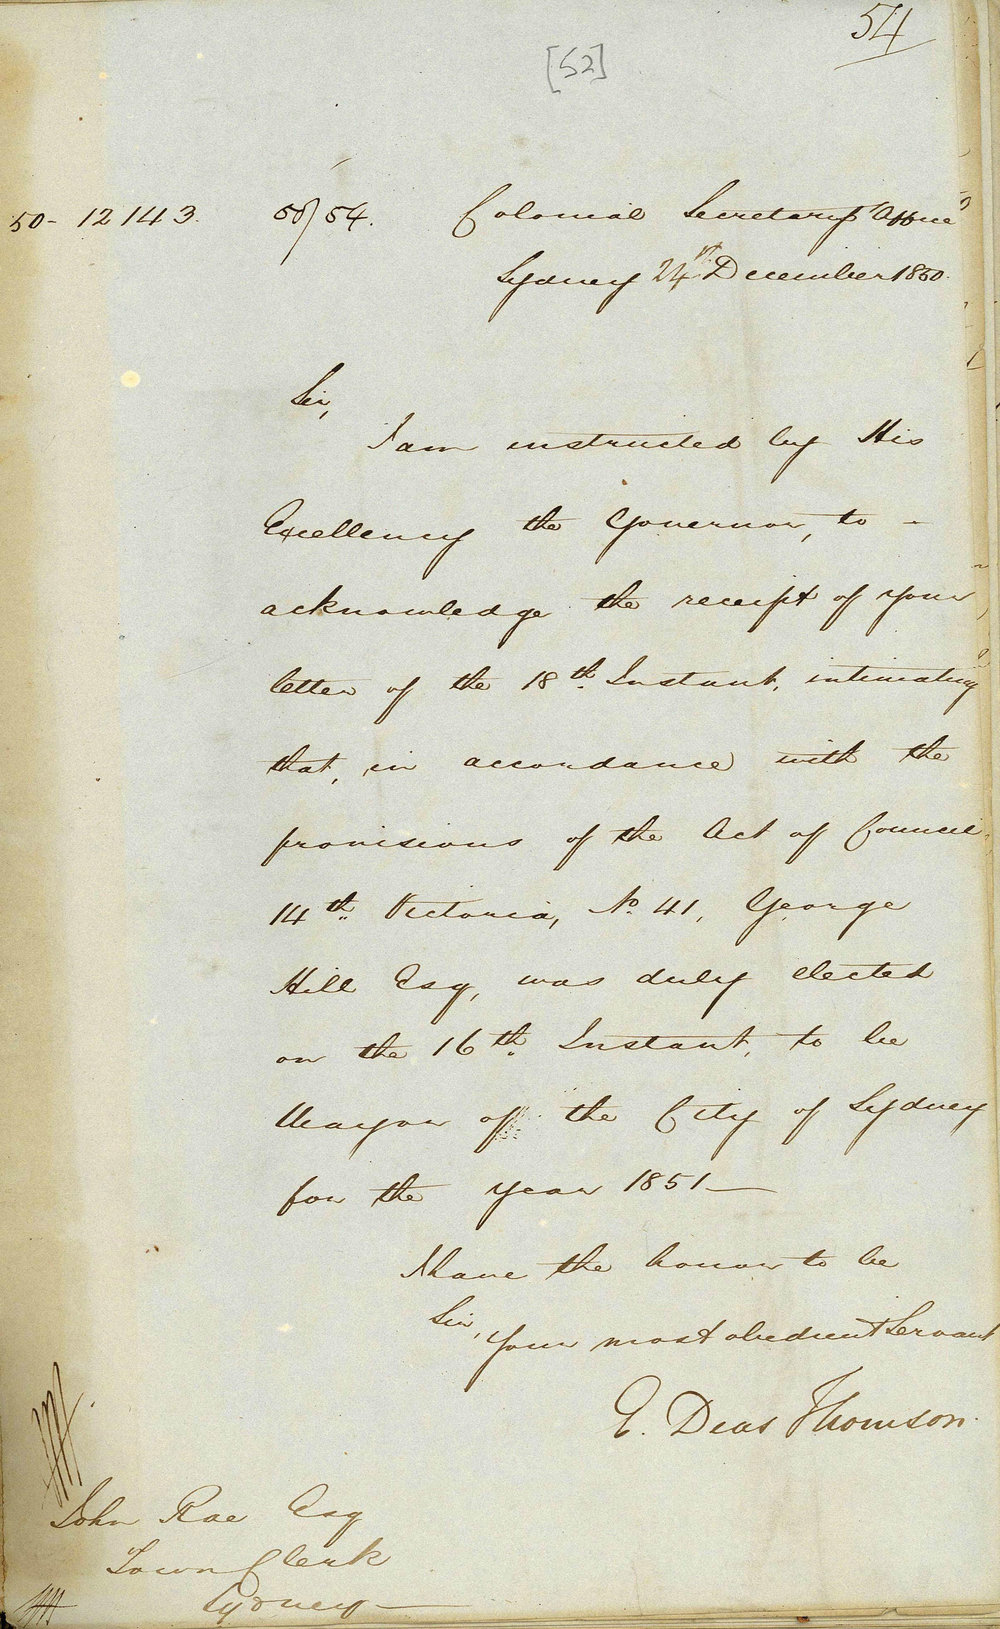 54
[52]
50-12143. 50/54. Colonial Secretary's Office
Sydney 24th December 1850.
Sir,
I am instructed by His
Excellency the Governor, to -
acknowledge the receipt of your
letter of the 18th. Instant, intimating
that, in accordance with the
provisions of the Act of Council,
14th. Victoria, No. 41, George
Hill Esq, was duly elected
on the 16th. Instant, to be
Mayor of the City of Sydney
for the year 1851—
I have the honor to be
Sir,
Your most obedient Servant
E. Deas Thomson.
John Rae Esq
Town Clerk
Sydney—